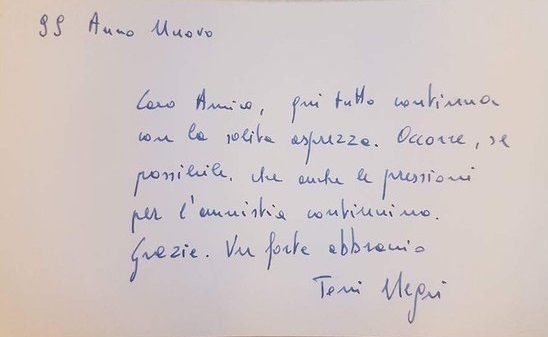 99 Anno Nuovo
Caro Amico, qui tutto continua
con la solita asprezza. Occorre, se
possibile, che anche le pressioni
per l'amnistia continuino.
Grazie. Un forte abbraccio
Toni Negri